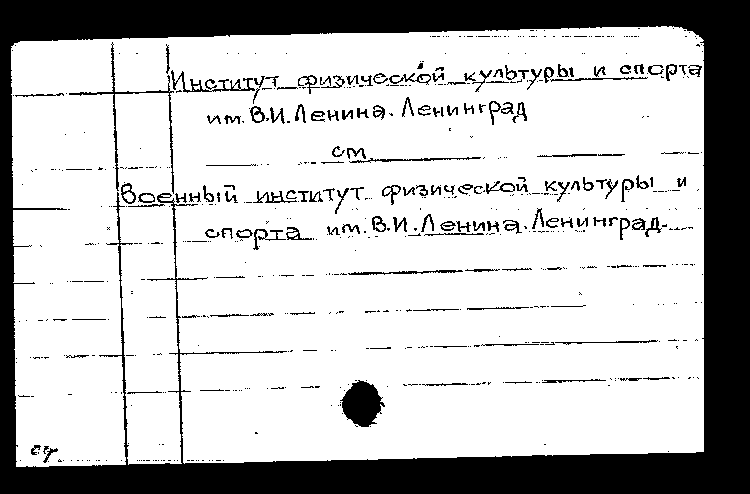 Институт физической культуры и спорта
им. В.И. Ленина. Ленинград
см
Военный институт физической культуры и
спорта им. В.И. Ленина. Ленинград.